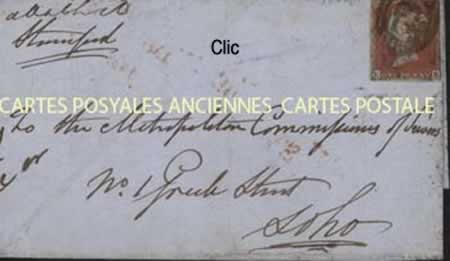 Stamford
Clic
ONE PENNY
CARTES POSYALES ANCIENNES CARTES POSTALE
To the Metropolitan Commissioners of Sewers
No. 1 Greek Street
Soho